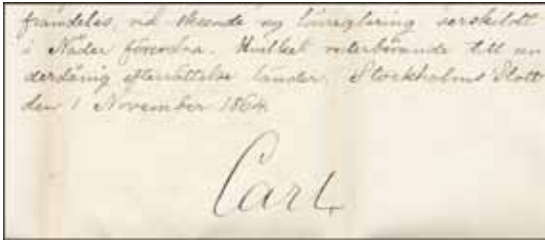 framdeles, vid skeende ny lönreglering serskilott
i Nåder förordna. Hvilket vederbörande till un
derdånig efterrättelse länder. Stockholms Slott
den 1 November 1864.
Carl